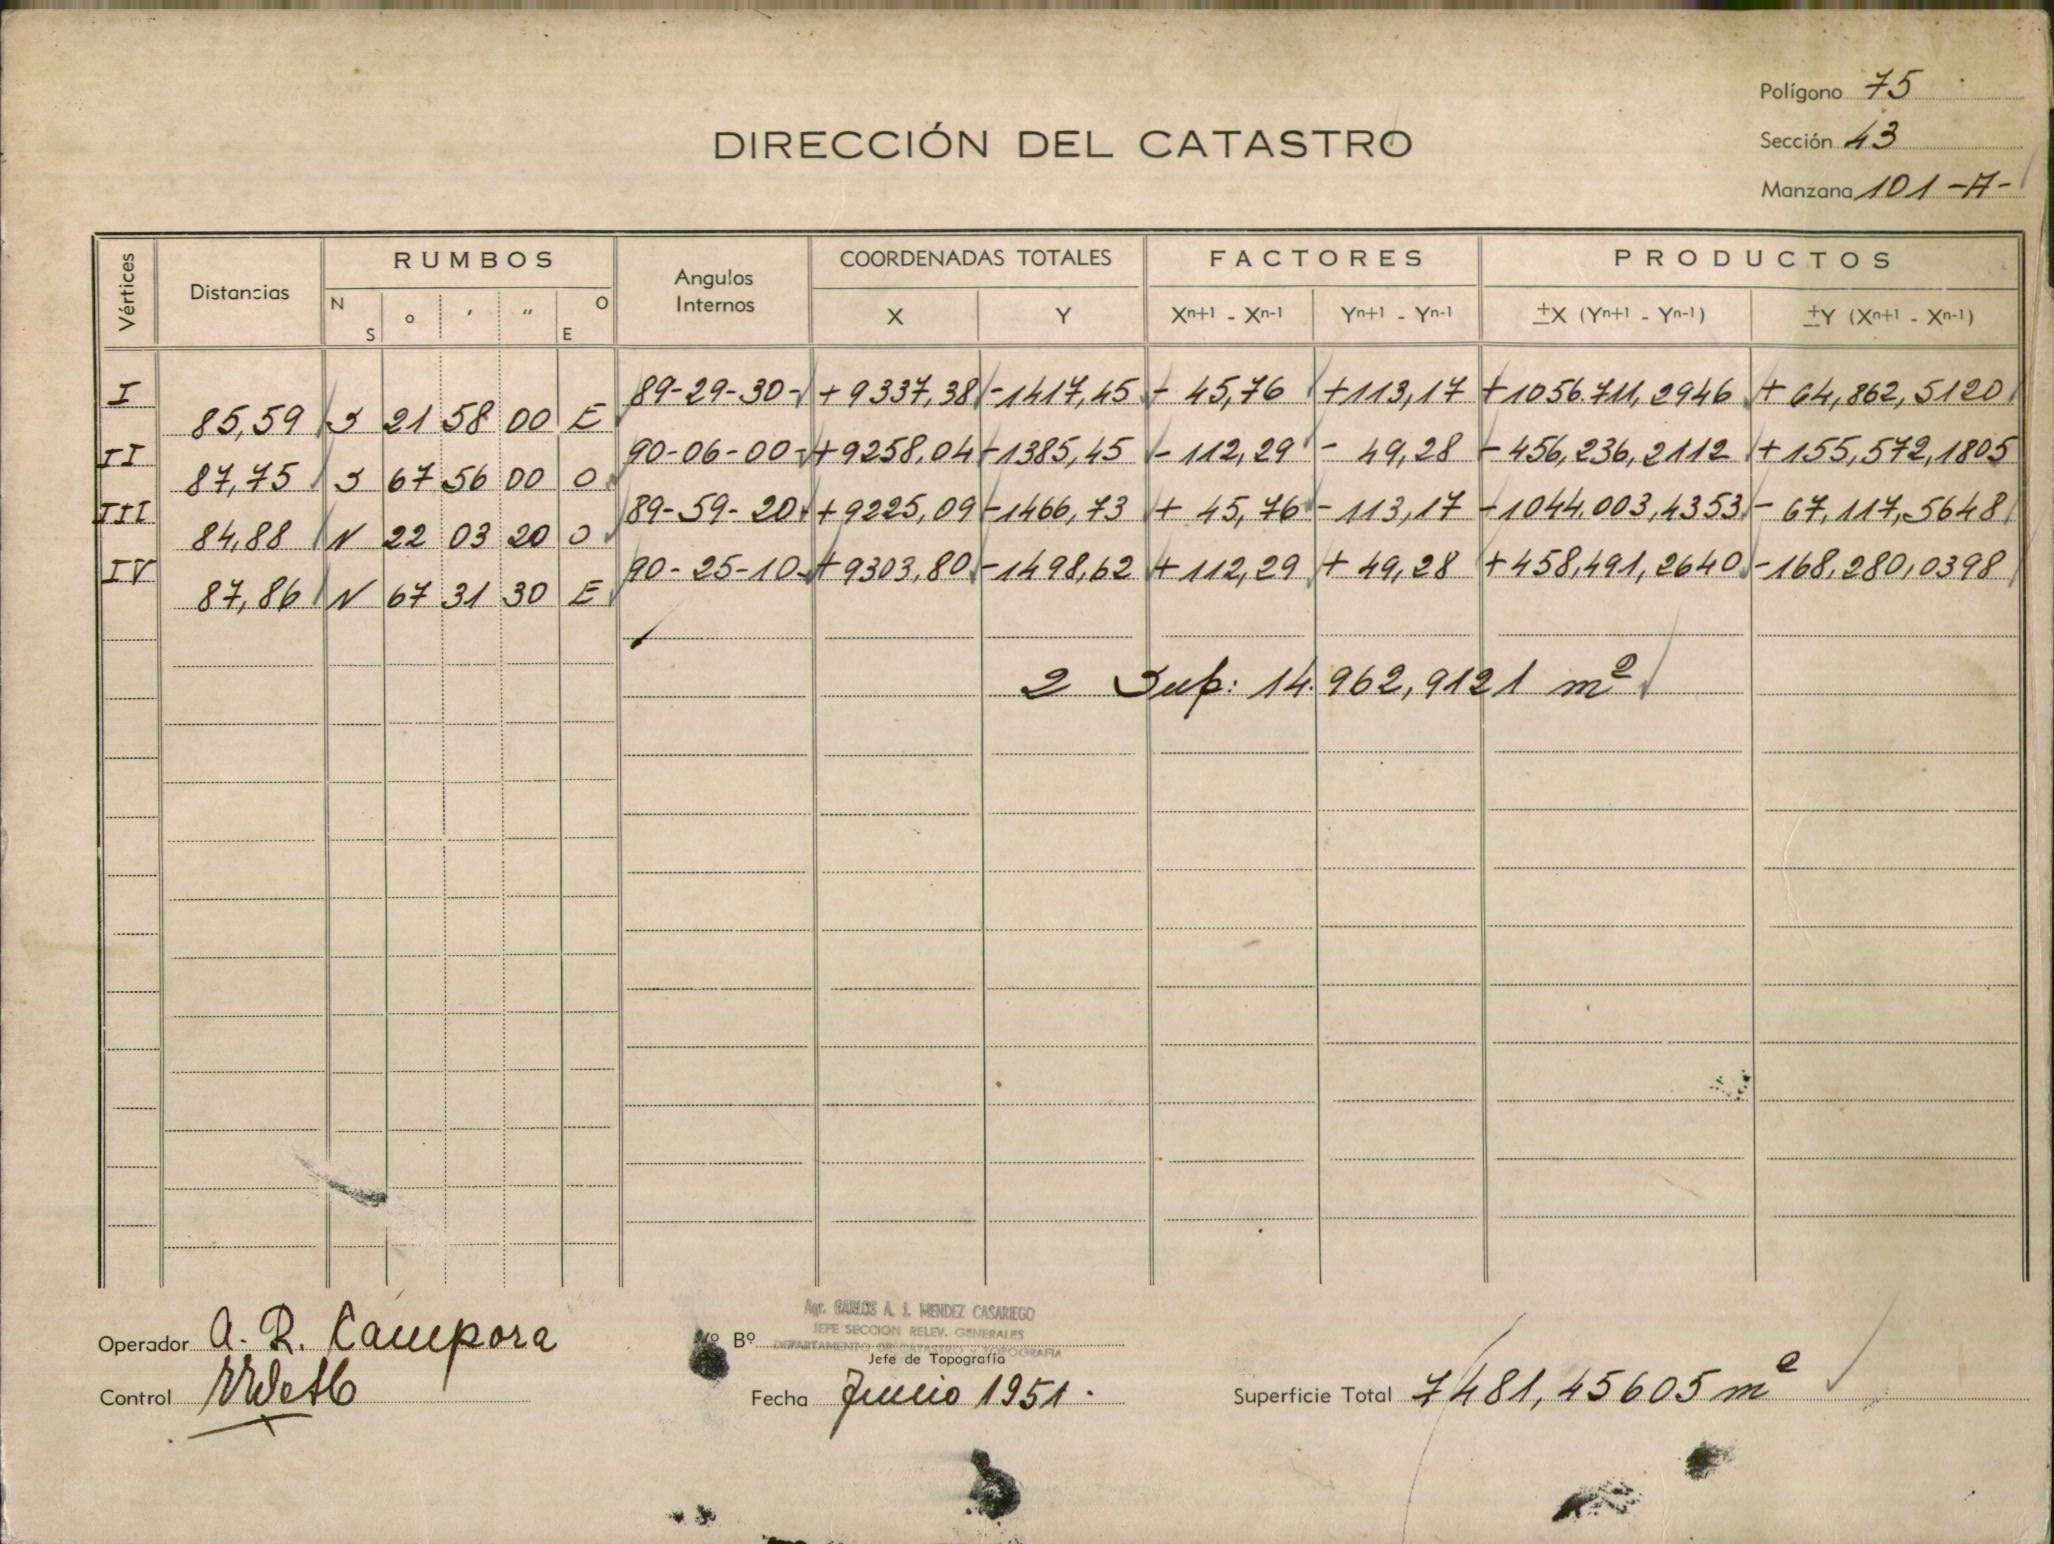 Polígono 75
DIRECCIÓN DEL CATASTRO
Sección 43
Manzana 101 -A-
Vértices Distancias RUMBOS Angulos Internos COORDENADAS TOTALES FACTORES PRODUCTOS
N S o ′ ″ O E X Y Xn+1 - Xn-1 Yn+1 - Yn-1 ±X (Yn+1 - Yn-1) ±Y (Xn+1 - Xn-1)
I 89-29-30- +9337,38 -1417,45 - 45,76 +113,17 +1056.711,2946 + 64,862,5120
85,59 S 21 58 00 E
II 90-06-00- +9258,04 -1385,45 -112,29 - 49,28 -456,236,2112 +155,572,1805
87,75 S 67 56 00 O
III 89-59-20 +9225,09 -1466,73 + 45,76 -113,17 -1044.003,4353 - 67,117,5648
84,88 N 22 03 20 O
IV 90-25-10- +9303,80 -1498,62 +112,29 + 49,28 +458,491,2640 -168,280,0398
87,86 N 67 31 30 E
2 Sup: 14.962,9121 m²
Agr. CARLOS A. J. MENDEZ CASARIEGO
JEFE SECCION RELEV. GENERALES
DEPARTAMENTO DE CATASTRO Y TOPOGRAFIA
Operador A. R. Campora Vº Bº
Jefe de Topografía
Control Fecha Junio 1951. Superficie Total 7481,45605 m²